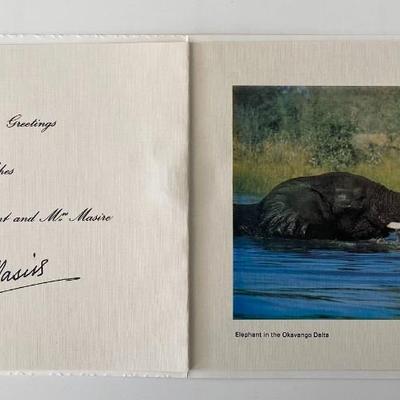 Greetings
hes
nt and Mrs Masire
Elephant in the Okavango Delta